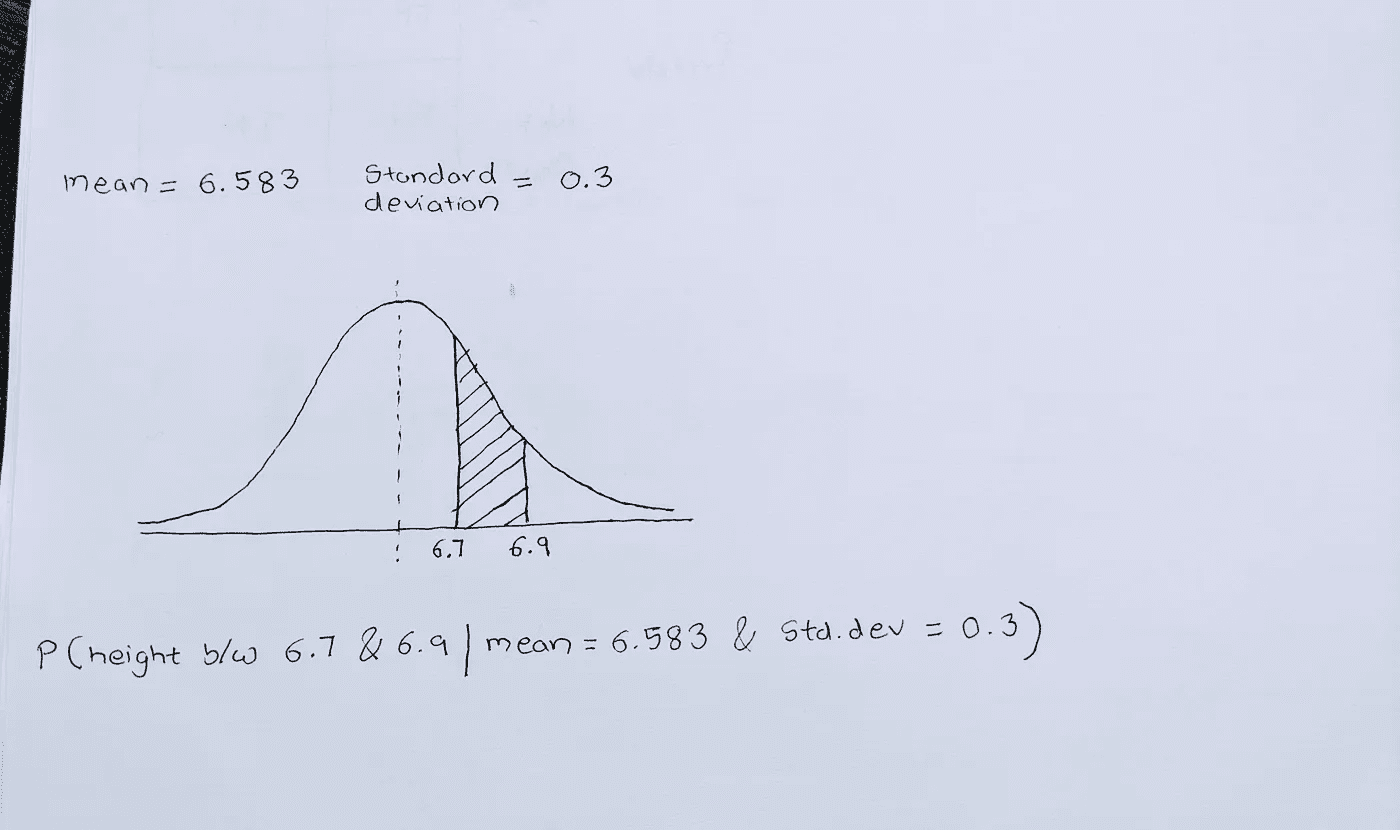 mean = 6.583 Standard deviation = 0.3
6.7 6.9
P(height b/w 6.7 & 6.9 | mean = 6.583 & Std.dev = 0.3)